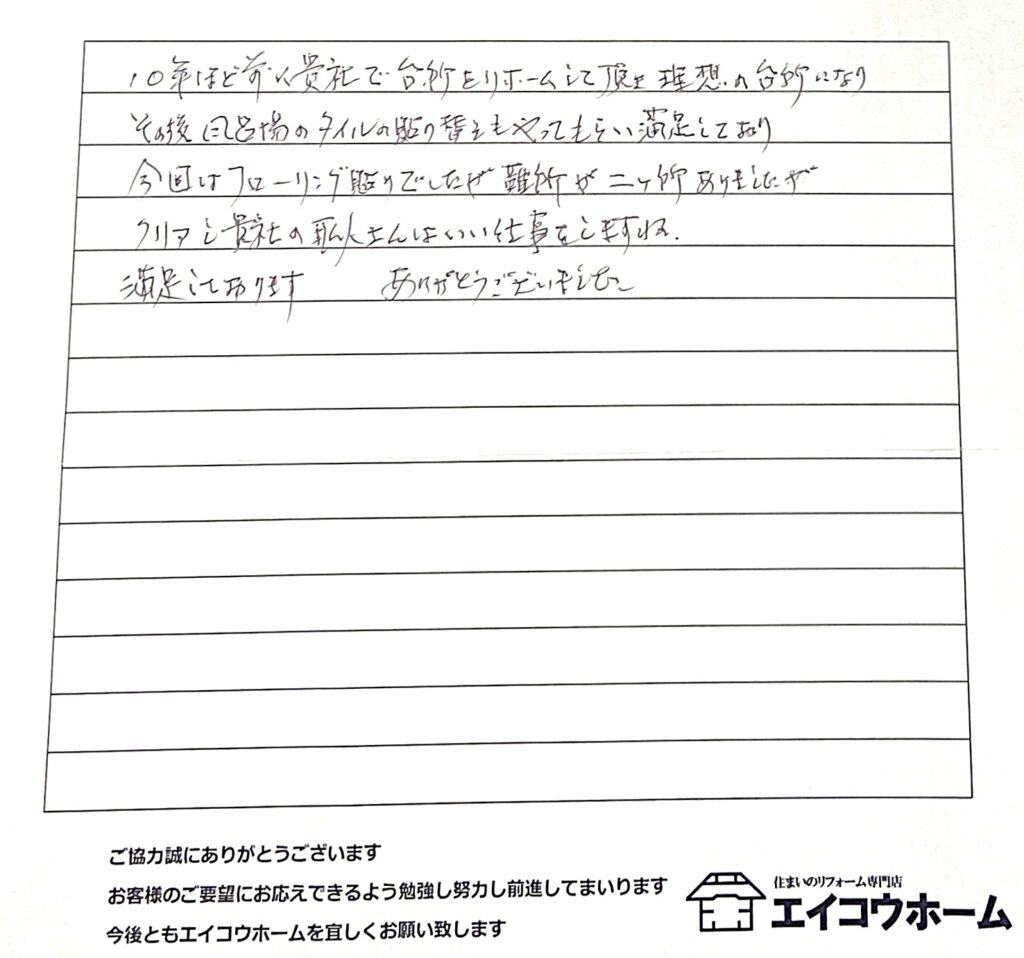 10年ほど前に貴社で台所をリホームして頂き理想の台所になり
その後風呂場のタイルの貼り替えもやってもらい満足しており
今回はフローリング貼りでしたが難所が二ヶ所ありましたが
クリアし貴社の職人さんはいい仕事をしますね.
満足しております ありがとうございました
ご協力誠にありがとうございます
お客様のご要望にお応えできるよう勉強し努力し前進してまいります
今後ともエイコウホームを宜しくお願い致します
住まいのリフォーム専門店
エイコウホーム